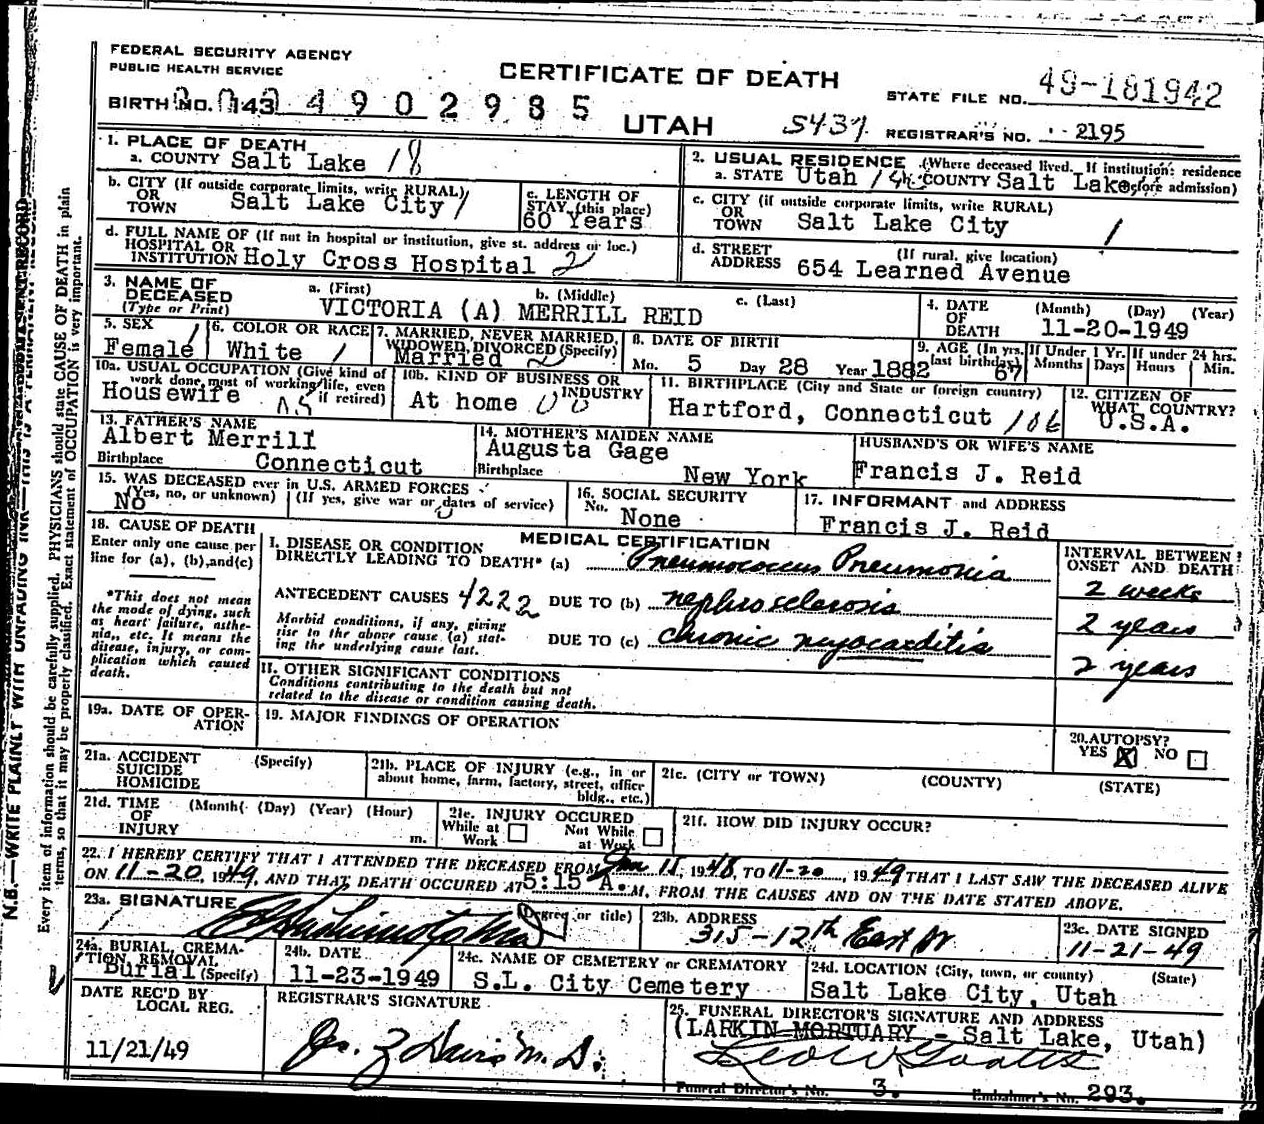 FEDERAL SECURITY AGENCY
PUBLIC HEALTH SERVICE
CERTIFICATE OF DEATH
STATE FILE NO. 49-181942
BIRTH NO. 143 4902985
UTAH
REGISTRAR'S NO. 2195
1. PLACE OF DEATH
a. COUNTY Salt Lake 18
2. USUAL RESIDENCE (Where deceased lived. If institution: residence before admission)
a. STATE Utah COUNTY Salt Lake
b. CITY (If outside corporate limits, write RURAL)
OR
TOWN Salt Lake City 1
c. LENGTH OF
STAY (this place)
60 Years
c. CITY (if outside corporate limits, write RURAL)
OR
TOWN Salt Lake City 1
d. FULL NAME OF (If not in hospital or institution, give st. address or loc.)
HOSPITAL OR
INSTITUTION Holy Cross Hospital 2
d. STREET (If rural, give location)
ADDRESS 654 Learned Avenue
3. NAME OF
DECEASED
(Type or Print)
a. (First) b. (Middle) c. (Last)
VICTORIA (A) MERRILL REID
4. DATE (Month) (Day) (Year)
OF
DEATH 11-20-1949
5. SEX
Female
6. COLOR OR RACE
White
7. MARRIED, NEVER MARRIED,
WIDOWED, DIVORCED (Specify)
Married
8. DATE OF BIRTH
Mo. 5 Day 28 Year 1882
9. AGE (In yrs. last birthday) 67
If Under 1 Yr. Months Days
If under 24 hrs. Hours Min.
10a. USUAL OCCUPATION (Give kind of
work done, most of working life, even
if retired)
Housewife
10b. KIND OF BUSINESS OR
INDUSTRY
At home
11. BIRTHPLACE (City and State or foreign country)
Hartford, Connecticut 106
12. CITIZEN OF
WHAT COUNTRY?
U.S.A.
13. FATHER'S NAME
Albert Merrill
Birthplace Connecticut
14. MOTHER'S MAIDEN NAME
Augusta Gage
Birthplace New York
HUSBAND'S OR WIFE'S NAME
Francis J. Reid
15. WAS DECEASED ever in U.S. ARMED FORCES
(Yes, no, or unknown) (If yes, give war or dates of service)
No
16. SOCIAL SECURITY
No. None
17. INFORMANT and ADDRESS
Francis J. Reid
18. CAUSE OF DEATH
Enter only one cause per
line for (a), (b), and (c)
*This does not mean
the mode of dying, such
as heart failure, asthe-
nia, etc. It means the
disease, injury, or com-
plication which caused
death.
MEDICAL CERTIFICATION
I. DISEASE OR CONDITION
DIRECTLY LEADING TO DEATH* (a) Pneumococcus Pneumonia
ANTECEDENT CAUSES 4222 DUE TO (b) nephrosclerosis
Morbid conditions, if any, giving
rise to the above cause (a) stat-
ing the underlying cause last.
DUE TO (c) chronic myocarditis
INTERVAL BETWEEN
ONSET AND DEATH
2 weeks
2 years
2 years
II. OTHER SIGNIFICANT CONDITIONS
Conditions contributing to the death but not
related to the disease or condition causing death.
19a. DATE OF OPER-
ATION
19. MAJOR FINDINGS OF OPERATION
20. AUTOPSY?
YES X NO
21a. ACCIDENT (Specify)
SUICIDE
HOMICIDE
21b. PLACE OF INJURY (e.g., in or
about home, farm, factory, street, office
bldg., etc.)
21c. (CITY or TOWN) (COUNTY) (STATE)
21d. TIME (Month) (Day) (Year) (Hour)
OF
INJURY m.
21e. INJURY OCCURED
While at Work Not While at Work
21f. HOW DID INJURY OCCUR?
22. I HEREBY CERTIFY THAT I ATTENDED THE DECEASED FROM 1948, TO 11-20, 1949 THAT I LAST SAW THE DECEASED ALIVE
ON 11-20, 1949, AND THAT DEATH OCCURED AT 5:15 A.M, FROM THE CAUSES AND ON THE DATE STATED ABOVE.
23a. SIGNATURE (Degree or title)
23b. ADDRESS
315-12th East
23c. DATE SIGNED
11-21-49
24a. BURIAL, CREMA-
TION, REMOVAL
Burial (Specify)
24b. DATE
11-23-1949
24c. NAME OF CEMETERY or CREMATORY
S.L. City Cemetery
24d. LOCATION (City, town, or county) (State)
Salt Lake City, Utah
DATE REC'D BY
LOCAL REG.
11/21/49
REGISTRAR'S SIGNATURE
25. FUNERAL DIRECTOR'S SIGNATURE AND ADDRESS
(LARKIN MORTUARY - Salt Lake, Utah)
Funeral Director's No. 3. Embalmer's No. 293.
N.B.—WRITE PLAINLY WITH UNFADING INK—THIS IS A PERMANENT RECORD
Every item of information should be carefully supplied. PHYSICIANS should state CAUSE OF DEATH in plain
terms, so that it may be properly classified. Exact statement of OCCUPATION is very important.